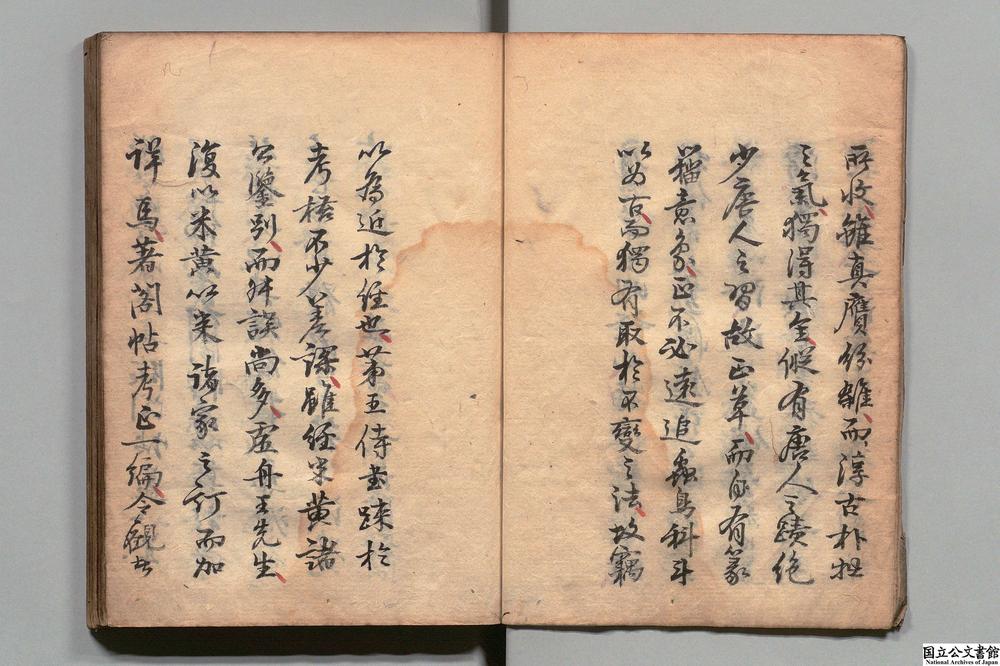 所收、雖真贋紛雜、而淳古朴拙
之氣、獨得其全、縱有唐人之蹟、絶
少唐人之習、故正草、而自有篆
籀意象、正不必遠追蟲鳥科斗
以為高、獨有取於不變之法、故竊
以為近於經也、第王侍書踈於
考核、不少差謬、雖經宋黄諸
公鑒別、而舛誤尚多、虚舟王先生、
復以米黄以来諸家之訂而加
詳焉、著閣帖考正一編、今觀此
国立公文書館
National Archives of Japan